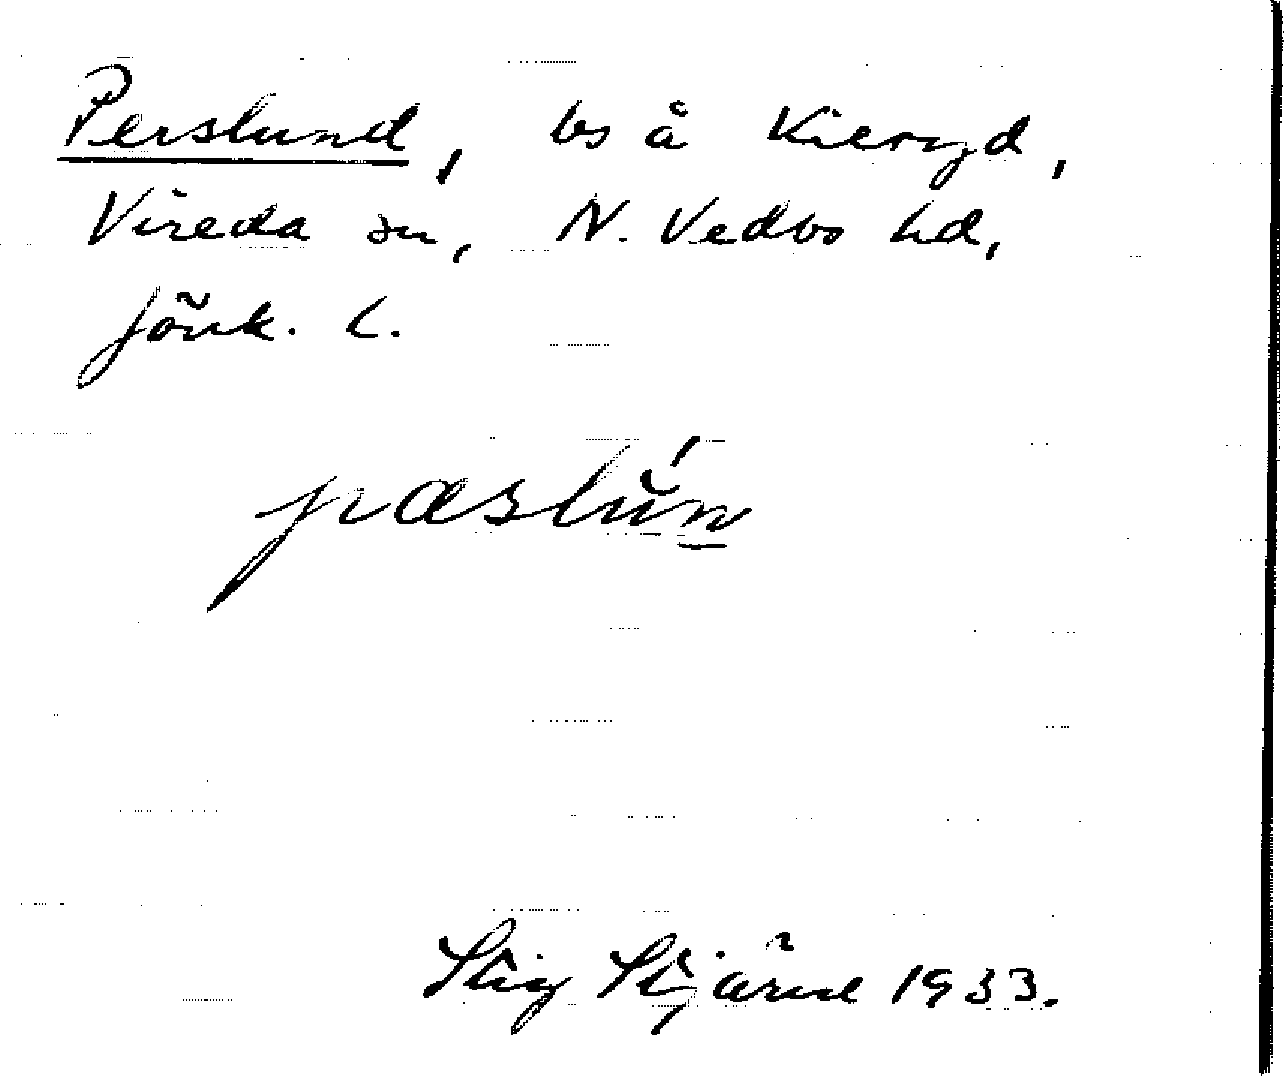 Perslund, bs å Kieryd,
Vireda sn, N. Vedbo hd,
Jönk. l.
pæslún
Stig Stjärne 1933.